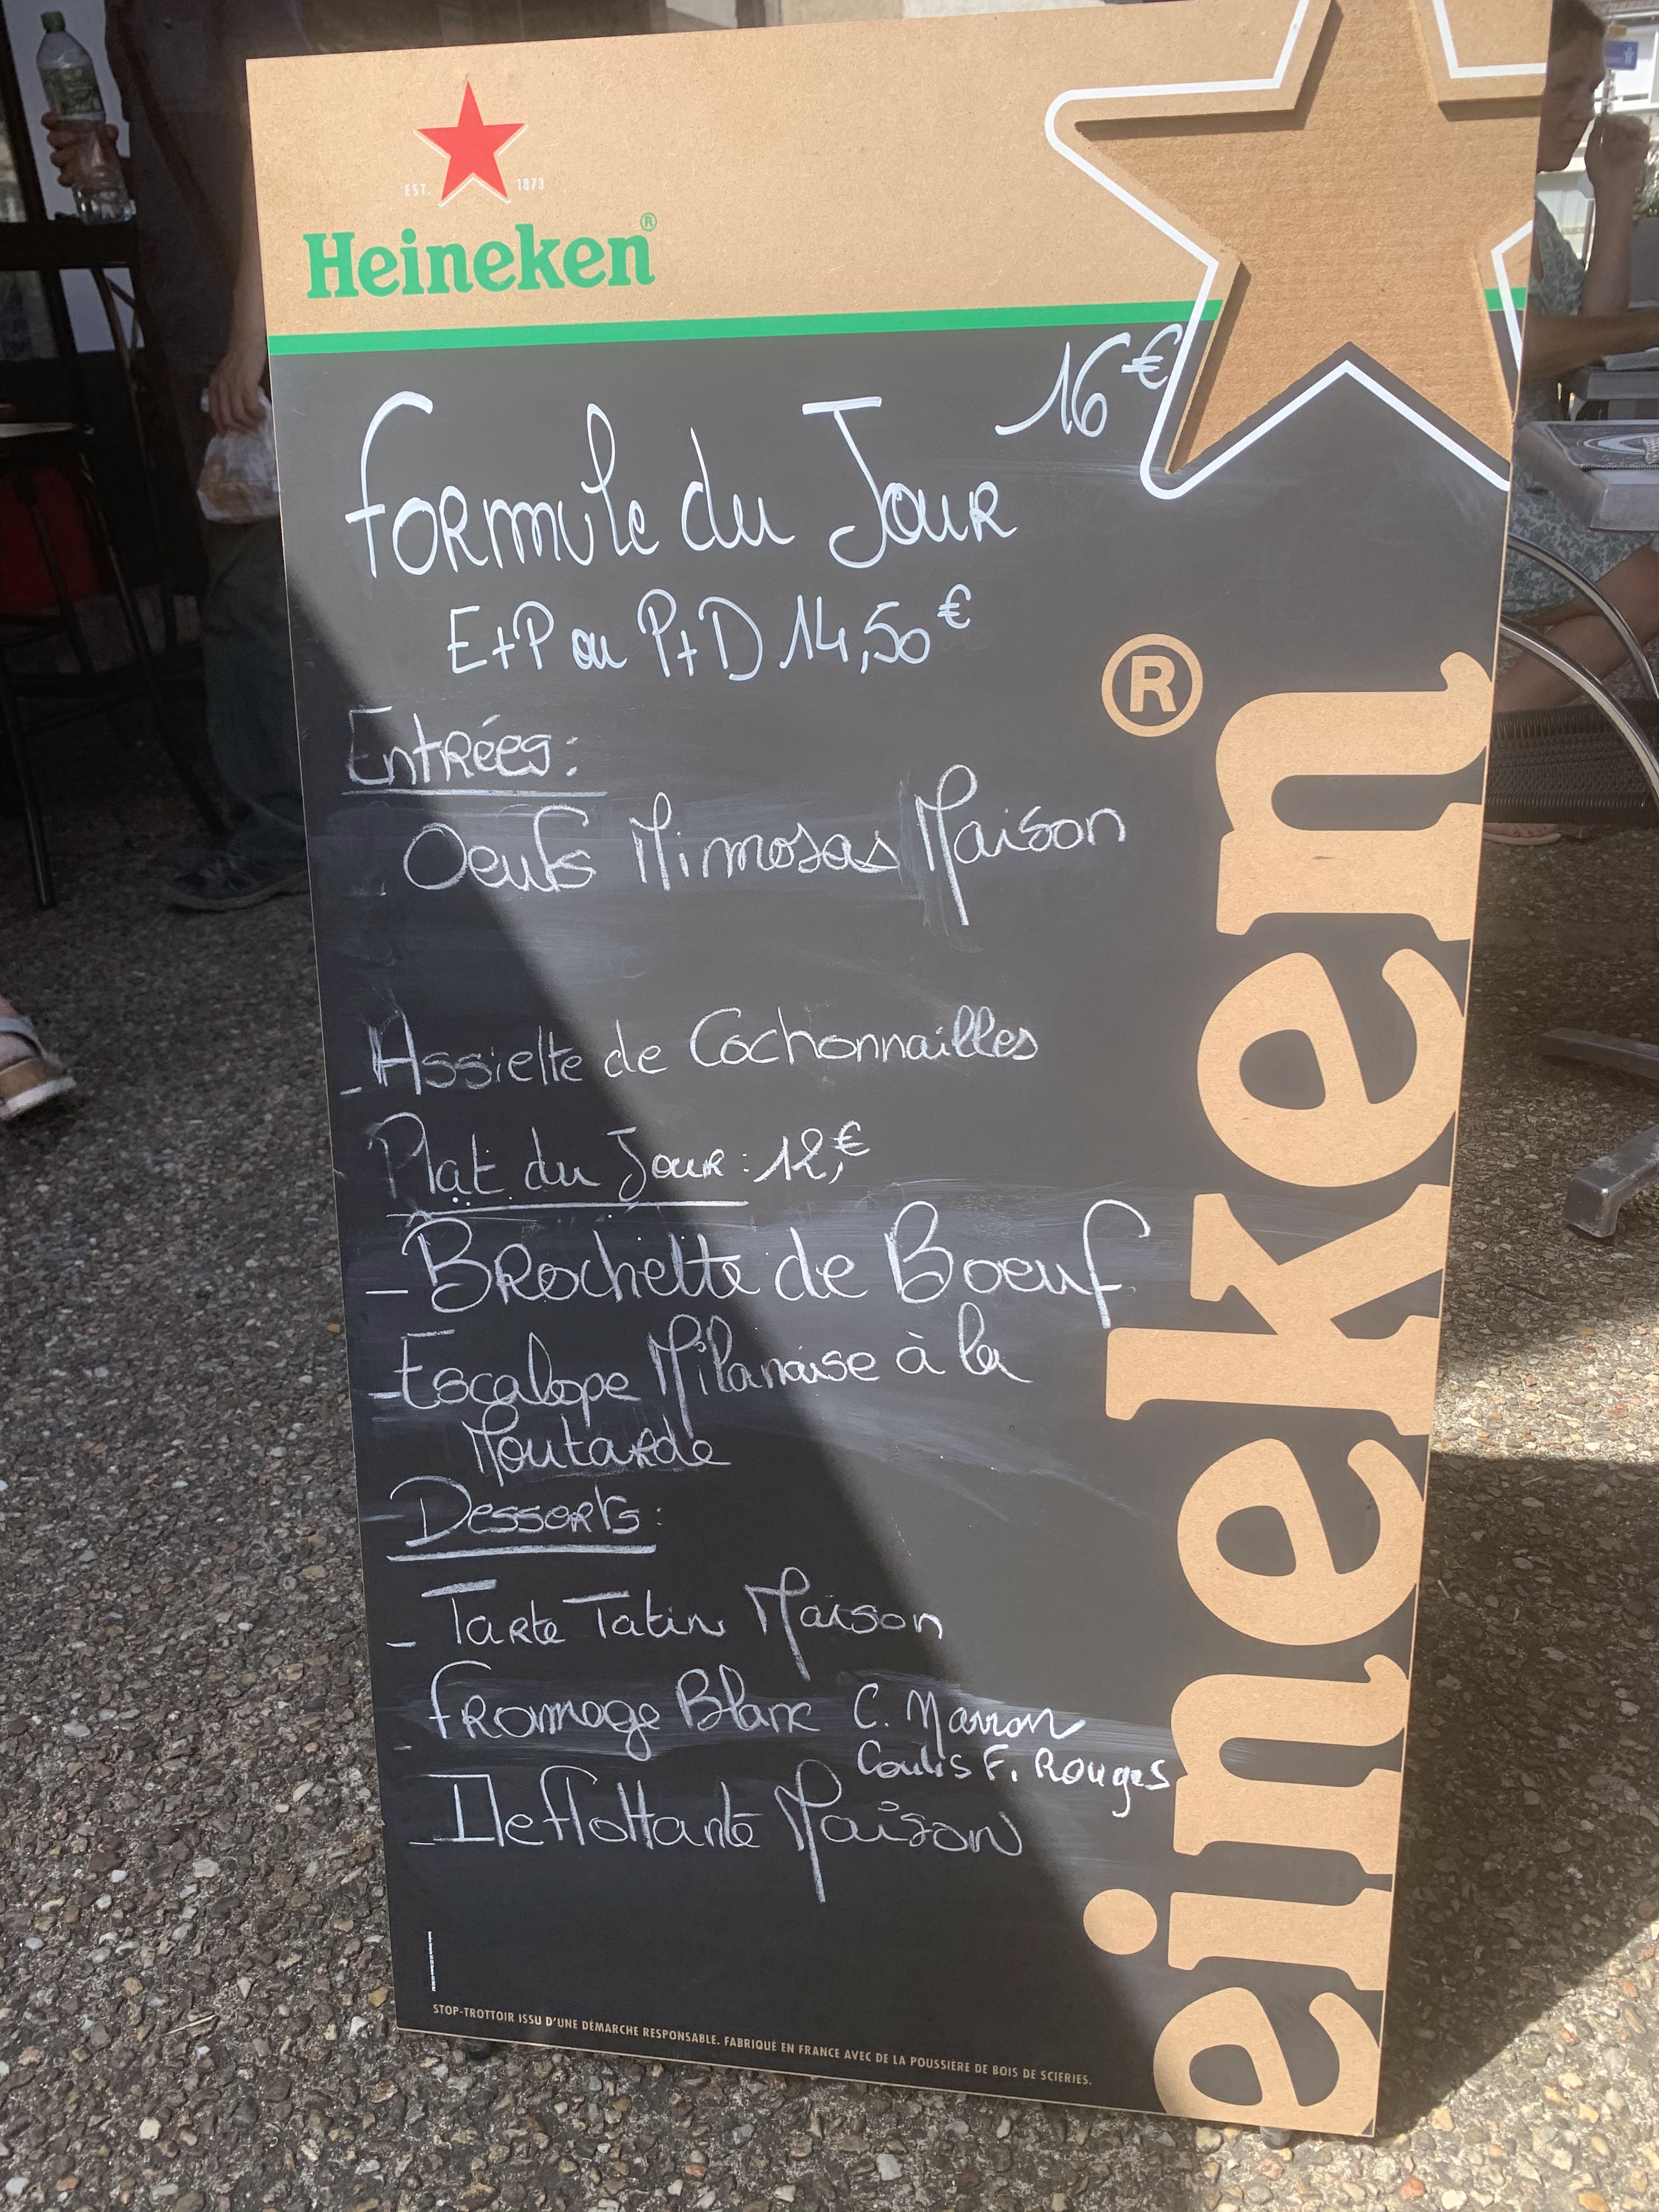 EST. 1873
Heineken®
16€
Formule du Jour
E+P ou P+D 14,50€
Entrées:
- Oeufs Mimosas Maison
- Assiette de Cochonnailles
Plat du Jour: 12,€
- Brochette de Boeuf
- Escalope Milanaise à la
Moutarde
Desserts:
- Tarte Tatin Maison
- Fromage Blanc C. Marron
Coulis F. Rouges
- Ile flottante Maison
eineken®
STOP-TROTTOIR ISSU D'UNE DÉMARCHE RESPONSABLE. FABRIQUÉ EN FRANCE AVEC DE LA POUSSIÈRE DE BOIS DE SCIERIES.